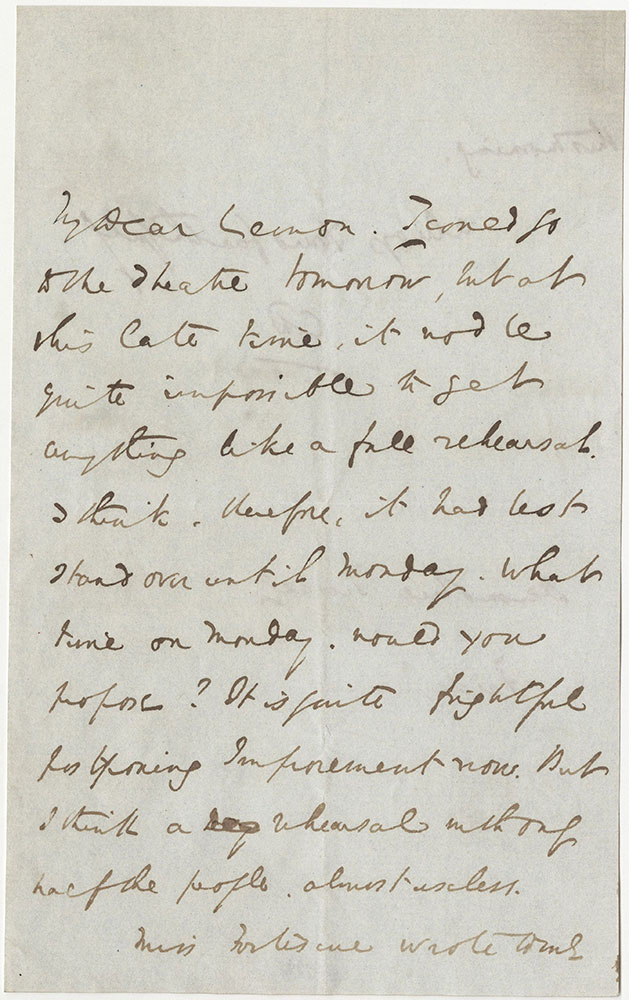 My Dear Lemon. I could go
to the Theatre tomorrow, but at
this late time, it wod be
quite impossible to get
anything like a full rehearsal.
I think, therefore, it had best
stand over until Monday. What
time on Monday, would you
propose? It is quite frightful
postponing Improvement now. But
I think a rehearsal with only
half the people, almost useless.
Miss Fortescue wrote to me